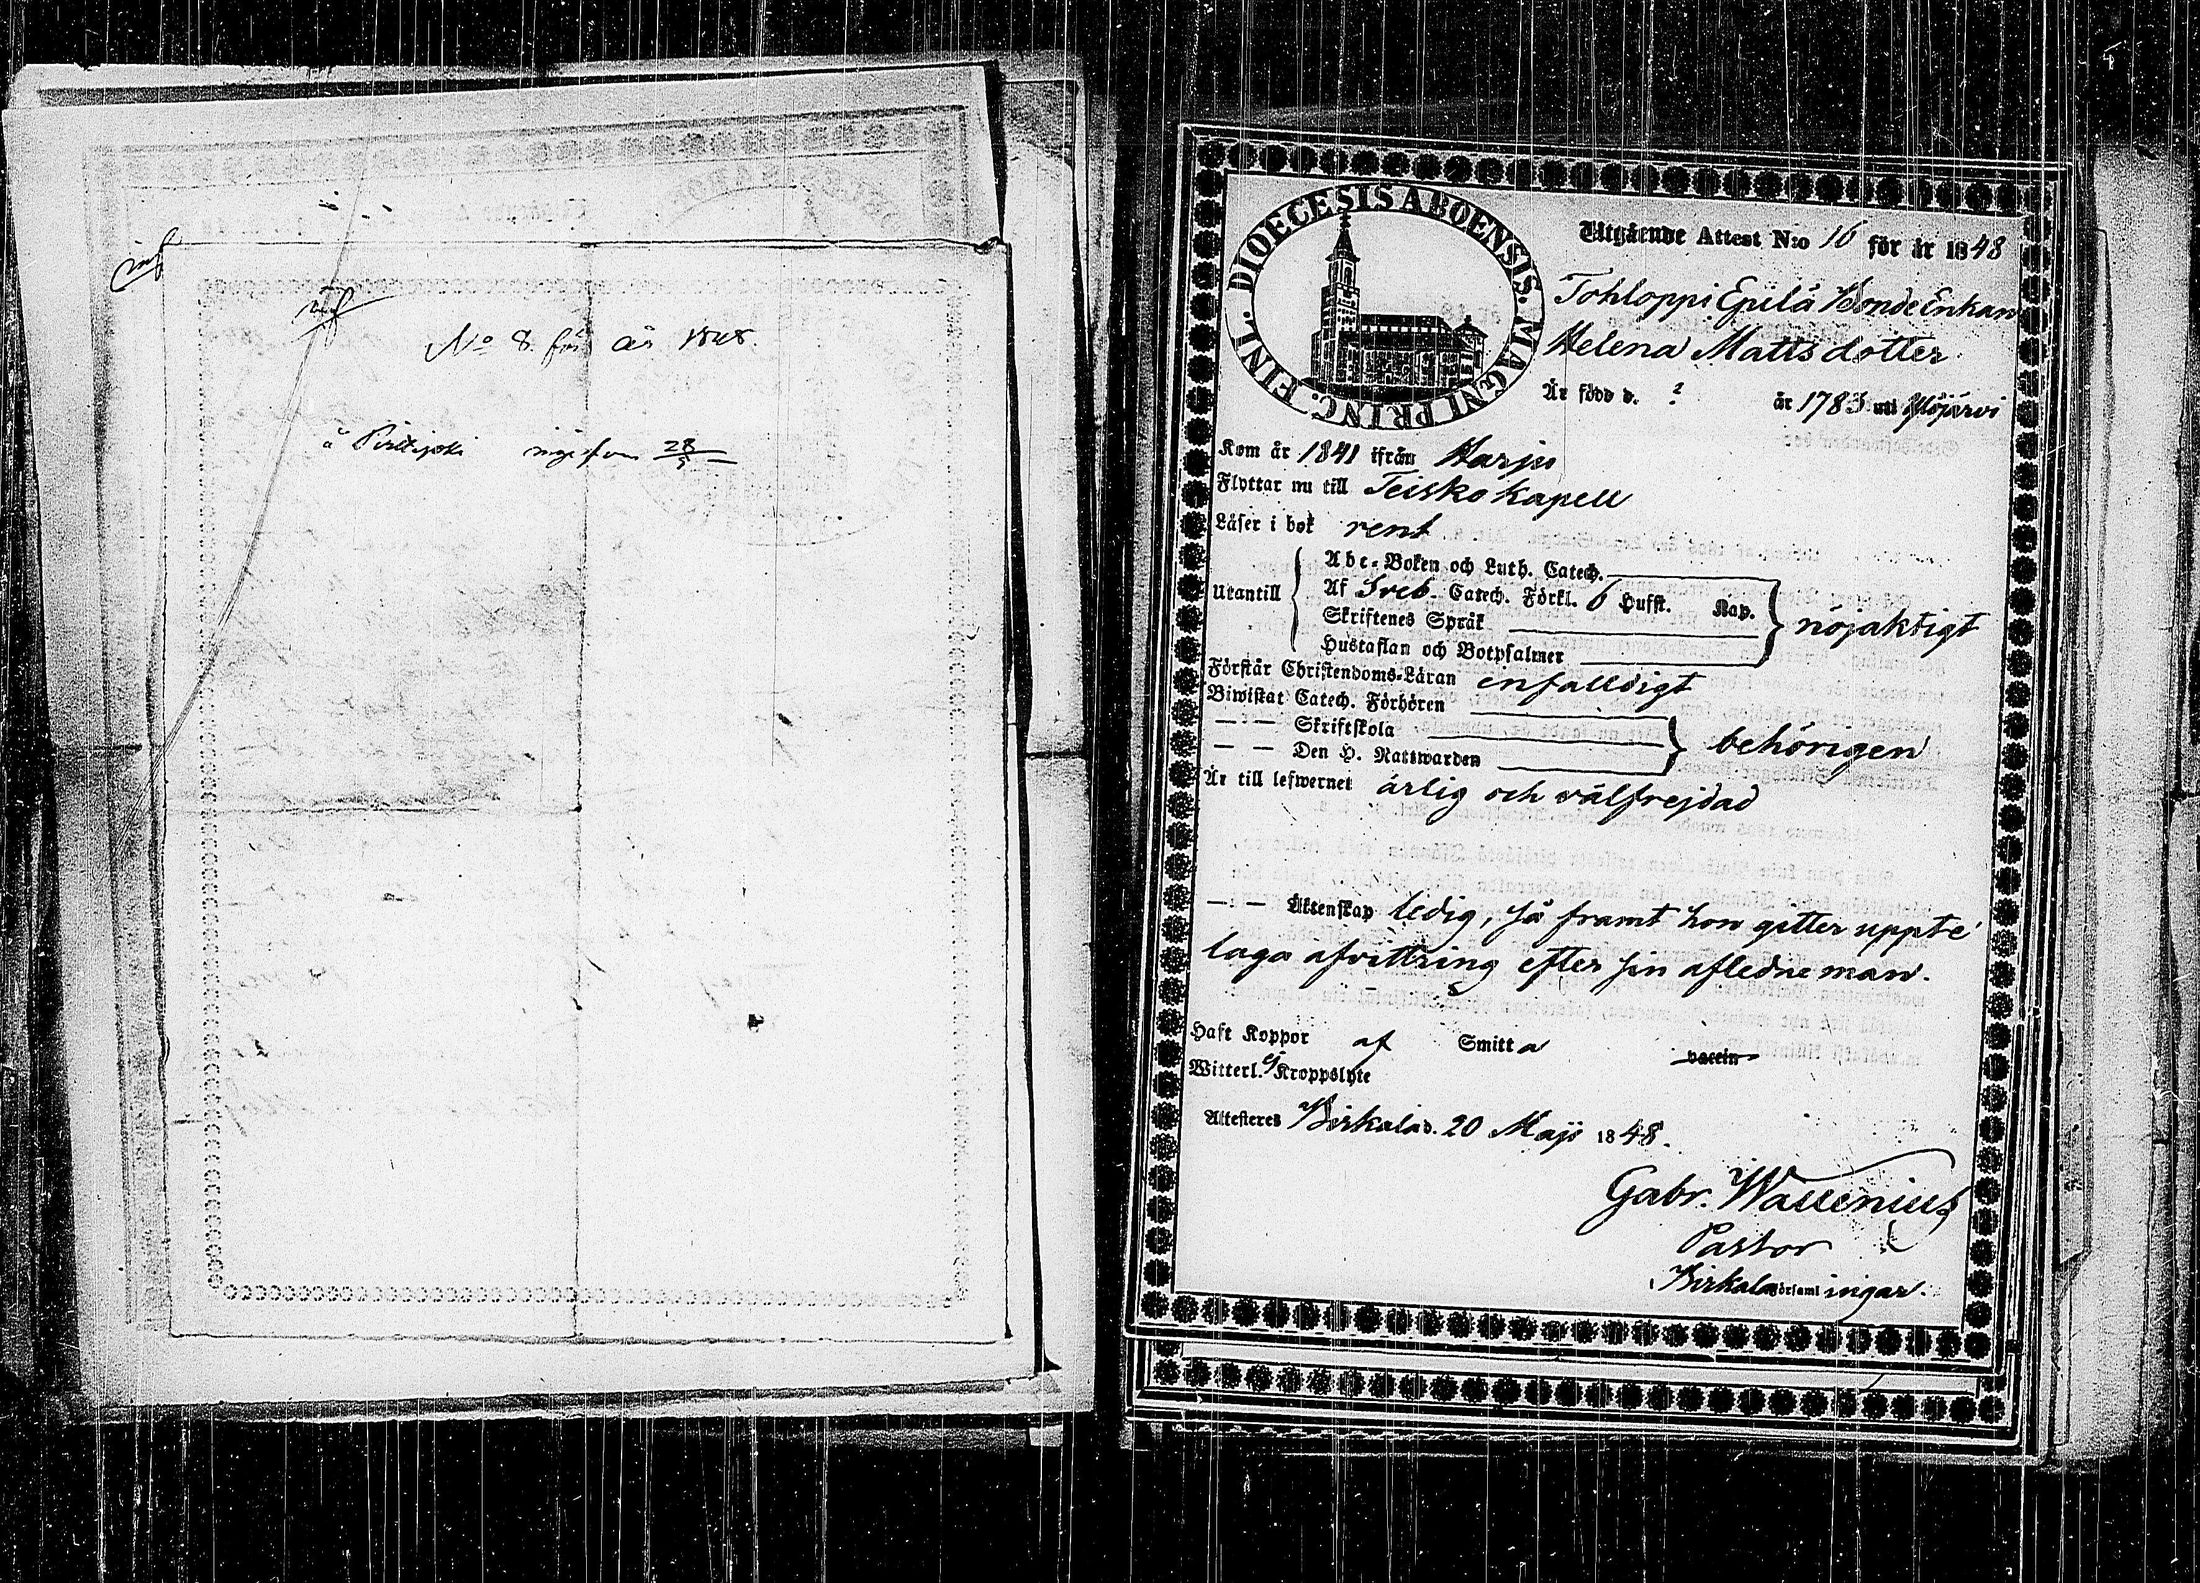 inf
No 8. för år 1848.
å Pirttijoki
28/5
DIOECESIS ABOENSIS. MAGNI PRINC. FINL.
Utgående Attest N:o 16 för år 1848
Tohloppi Epilä Bonde Enkan
Helena Matts dotter
Är född d. ? år 1783 uti Ylöjärvi
Kom år 1841 ifrån Harju
Flyttar nu till Teisko Kapell
Läser i bok rent
Utantill
Abc-Boken och Luth. Catech.
Af Sveb. Catech. Förkl. 6 Hufst. Kap.
Skriftenes Språk
Hustaflan och Botpsalmer
nöjaktigt
Förstår Christendoms-Läran enfalldigt
Biwistat Catech. Förhören
— : — Skriftskola
— — Den H. Nattwarden
behörigen
Är till lefwernet ärlig och välfrejdad
— : — Äktenskap ledig, så framt hon gitter uppte
laga afvittring efter sin afledne man.
Haft Koppor af Smitta vaccin
Witterl. ej Kroppslyte
Attesteres Birkala d. 20 Maji 1848.
Gabr. Wallenius
Pastor
Birkala församlingar.